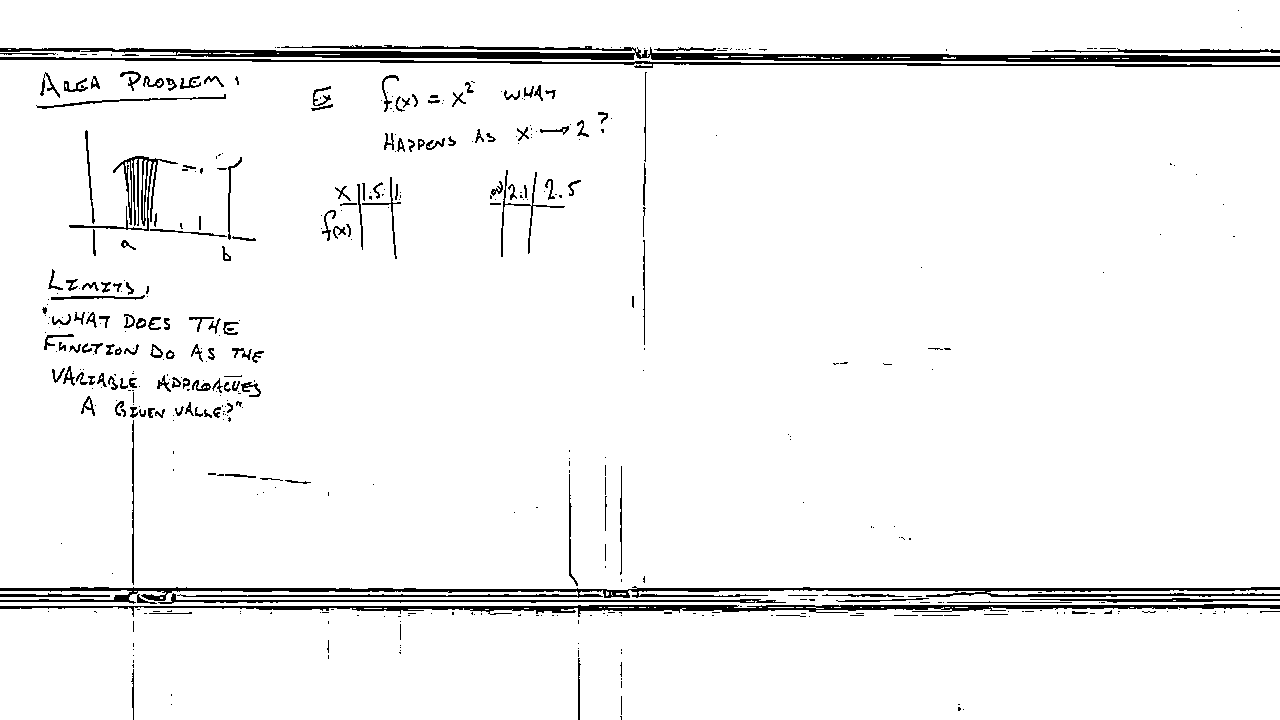 AREA PROBLEM:
a
b
LIMITS:
"WHAT DOES THE
FUNCTION DO AS THE
VARIABLE APPROACHES
A GIVEN VALUE?"
Ex f(x) = x² WHAT
HAPPENS AS x → 2?
x 1.5 2.1 2.5
f(x)